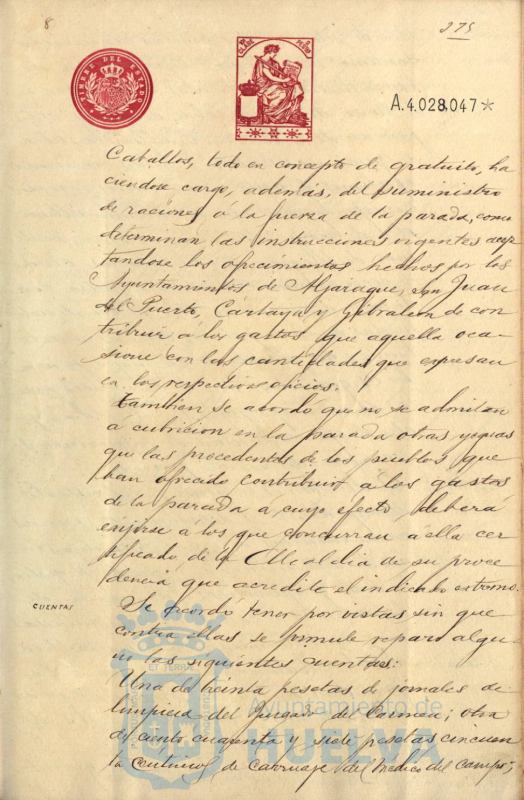 8
275
TIMBRE DEL ESTADO
CLASE
A.4.028.047*
Caballos, todo en concepto de gratuito, ha
ciendose cargo, además, del suministro
de raciones á la fuerza de la parada, como
determinan las instrucciones vigentes acep
tándose los ofrecimientos hechos por los
Ayuntamientos de Aljaraque, San Juan
del Puerto, Cartaya y Gibraleon de con
tribuir á los gastos que aquella oca-
sione con las cantidades que expresan
en los respectivos oficios.
También se acordó que no se admitan
a cubricion en la parada otras yeguas
que las procedentes de los pueblos que
han ofrecido contribuir á los gastos
de la parada a cuyo efecto, deberá
exijirse á los que concurran á ella cer
tificado de la Alcaldia de su proce
dencia que acredite el indicado extremo.
CUENTAS
Se acordó tener por vistas sin que
contra ellas se formule reparo algu-
no las siguientes cuentas:
Una de treinta pesetas de jornales de
limpieza del Juzgado del Carmen; otra
de ciento cincuenta y siete pesetas cincuen
ta céntimos de carruaje del Medico del campo;
Ayuntamiento de
HUELVA